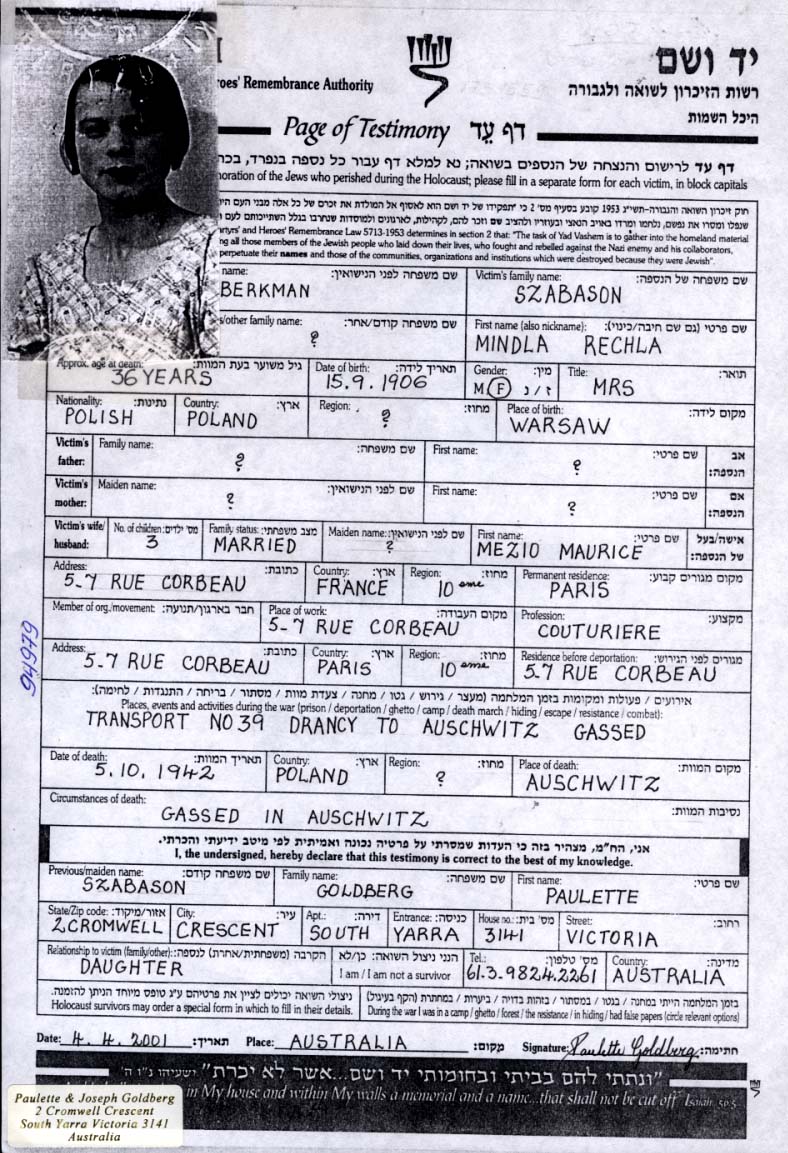 יד ושם
Heroes' Remembrance Authority
רשות הזיכרון לשואה ולגבורה
היכל השמות
Page of Testimony דף עֵד
דף עד לרישום והנצחה של הנספים בשואה; נא למלא דף עבור כל נספה בנפרד, בכת
oration of the Jews who perished during the Holocaust; please fill in a separate form for each victim, in block capitals
חוק זיכרון השואה והגבורה-תשי"ג 1953 קובע בסעיף מס' 2 כי "תפקידו של יד ושם הוא לאסוף אל המולדת את זכרם של כל אלה מבני העם
שנפלו ומסרו את נפשם, נלחמו ומרדו באויב הנאצי ובעוזריו ולהציב שם וזכר להם, לקהילות, לארגונים ולמוסדות שנחרבו בגלל השתייכותם לעם
artyrs' and Heroes' Remembrance Law 5713-1953 determines in section 2 that: "The task of Yad Vashem is to gather into the homeland material
ng all those members of the Jewish people who laid down their lives, who fought and rebelled against the Nazi enemy and his collaborators,
perpetuate their names and those of the communities, organizations and institutions which were destroyed because they were Jewish".
name: שם משפחה לפני הנישואין: Victim's family name: שם משפחה של הנספה:
BERKMAN SZABASON
s/other family name: שם משפחה קודם/אחר: First name (also nickname): שם פרטי (גם שם חיבה/כינוי):
? MINDLA RECHLA
Approx. age at death: גיל משוער בעת המוות: Date of birth: תאריך לידה: Gender: מין: Title: תואר:
36 YEARS 15.9.1906 M F ז / נ MRS
Nationality: נתינות: Country: ארץ: Region: מחוז: Place of birth: מקום לידה:
POLISH POLAND ? WARSAW
Victim's father: Family name: שם משפחה: First name: שם פרטי: אב הנספה:
? ?
Victim's mother: Maiden name: שם לפני הנישואין: First name: שם פרטי: אם הנספה:
? ?
Victim's wife/ husband: No. of children: מס' ילדים: Family status: מצב משפחתי: Maiden name: שם לפני הנישואין: First name: שם פרטי: אישה/בעל של הנספה:
3 MARRIED ? MEZIO MAURICE
Address: כתובת: Country: ארץ: Region: מחוז: Permanent residence: מקום מגורים קבוע:
5-7 RUE CORBEAU FRANCE 10 eme PARIS
Member of org./movement: חבר בארגון/תנועה: Place of work: מקום העבודה: Profession: מקצוע:
5-7 RUE CORBEAU COUTURIERE
Address: כתובת: Country: ארץ: Region: מחוז: Residence before deportation: מגורים לפני הגירוש:
5-7 RUE CORBEAU PARIS 10 eme 5-7 RUE CORBEAU
94979
אירועים / פעולות ומקומות בזמן המלחמה (מעצר / גירוש / גטו / מחנה / צעדת מוות / מסתור / בריחה / התנגדות / לחימה):
Places, events and activities during the war (prison / deportation / ghetto / camp / death march / hiding / escape / resistance / combat):
TRANSPORT NO 39 DRANCY TO AUSCHWITZ GASSED
Date of death: תאריך המוות: Country: ארץ: Region: מחוז: Place of death: מקום המוות:
5.10.1942 POLAND ? AUSCHWITZ
Circumstances of death: נסיבות המוות:
GASSED IN AUSCHWITZ
אני, הח"מ, מצהיר בזה כי העדות שמסרתי על פרטיה נכונה ואמיתית לפי מיטב ידיעתי והכרתי.
I, the undersigned, hereby declare that this testimony is correct to the best of my knowledge.
Previous/maiden name: שם משפחה קודם: Family name: שם משפחה: First name: שם פרטי:
SZABASON GOLDBERG PAULETTE
State/Zip code: אזור/מיקוד: City: עיר: Apt.: דירה: Entrance: כניסה: House no.: מס' בית: Street: רחוב:
2 CROMWELL CRESCENT SOUTH YARRA 3141 VICTORIA
Relationship to victim (family/other): הקרבה (משפחתית/אחרת) לנספה: הנני ניצול השואה: כן/לא Tel.: מס' טלפון: Country: מדינה:
DAUGHTER I am / I am not a survivor 61.3.9824.2261 AUSTRALIA
ניצולי השואה יכולים לציין את פרטיהם ע"ג טופס מיוחד הניתן להזמנה. בזמן המלחמה הייתי במחנה / בגטו / במסתור / בזהות בדויה / ביערות / במחתרת (הקף בעיגול)
Holocaust survivors may order a special form in which to fill in their details. During the war I was in a camp / ghetto / forest / the resistance / in hiding / had false papers (circle relevant options)
Date: 4.4.2001 תאריך: Place: AUSTRALIA מקום: Signature: Paulette Goldberg חתימה:
"ונתתי להם בביתי ובחומותי יד ושם...אשר לא יכרת" ישעיהו נ"ו ה'
in My house and within My walls a memorial and a name...that shall not be cut off. Isaiah, 56.5
Paulette & Joseph Goldberg
2 Cromwell Crescent
South Yarra Victoria 3141
Australia